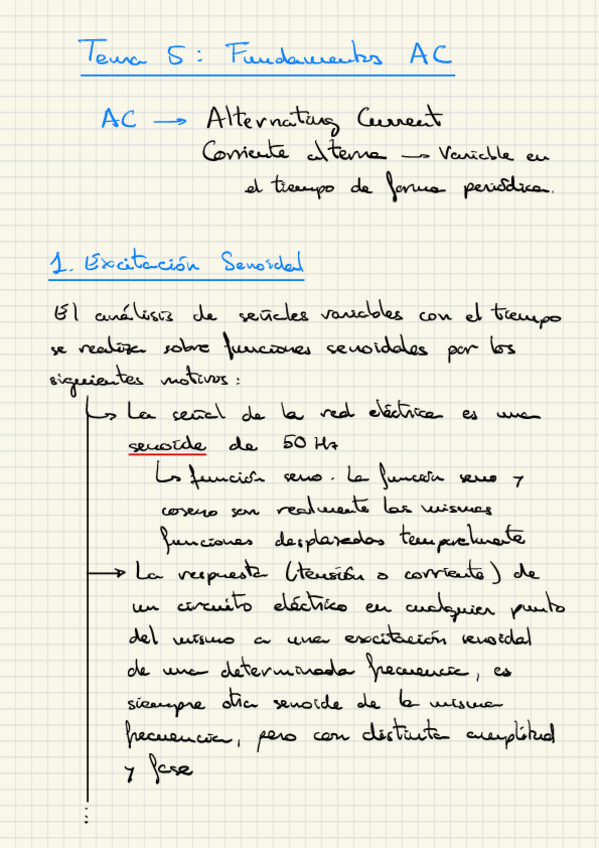 Tema 5: Fundamentos AC
AC → Alternating Current
Corriente alterna → Variable en
el tiempo de forma periódica.
1. Excitación Senoidal
El análisis de señales variables con el tiempo
se realiza sobre funciones senoidales por los
siguientes motivos:
↳ La señal de la red eléctrica es una
senoide de 50 Hz
↳ función seno. La función seno y
coseno son realmente las mismas
funciones desplazadas temporalmente
→ La respuesta (tensión o corriente) de
un circuito eléctrico en cualquier punto
del mismo a una excitación senoidal
de una determinada frecuencia, es
siempre otra senoide de la misma
frecuencia, pero con distinta amplitud
y fase
⋮